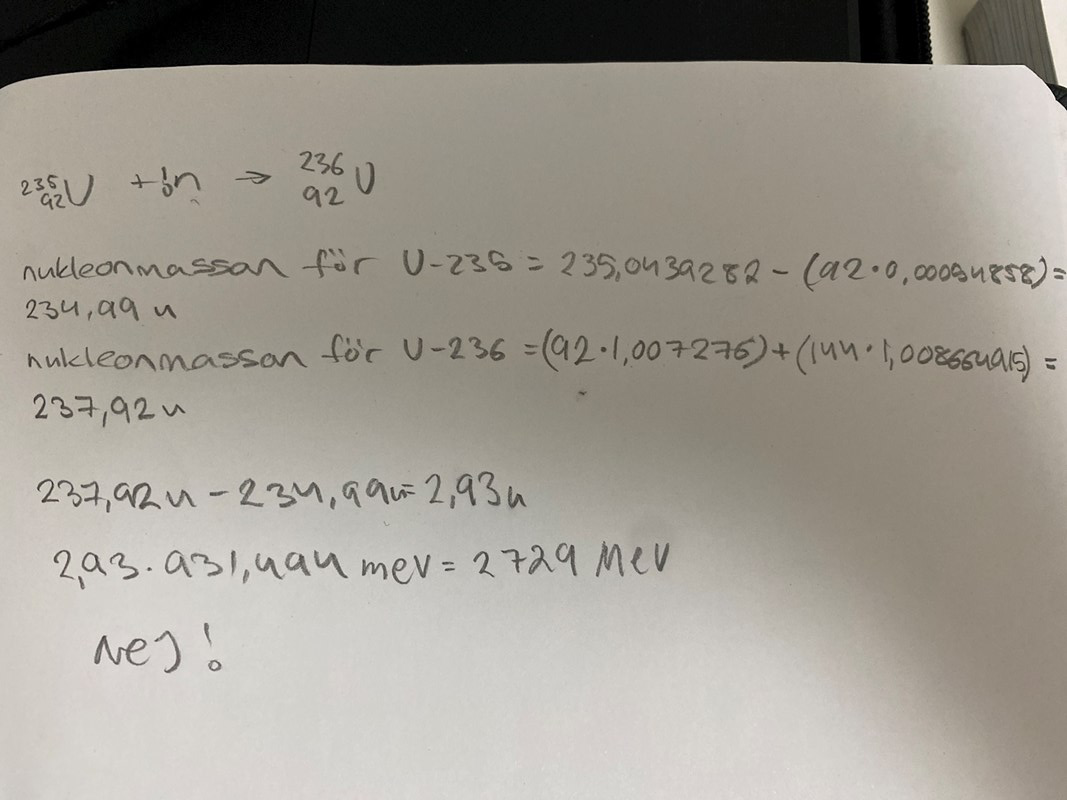 ²³⁵₉₂U + ¹₀n → ²³⁶₉₂U
nukleonmassan för U-235 = 235,0439282 - (92·0,00054858) =
234,99 u
nukleonmassan för U-236 = (92·1,007276) + (144·1,008664915) =
237,92 u
237,92 u - 234,99 u = 2,93 u
2,93·931,494 mev = 2729 MeV
Nej!